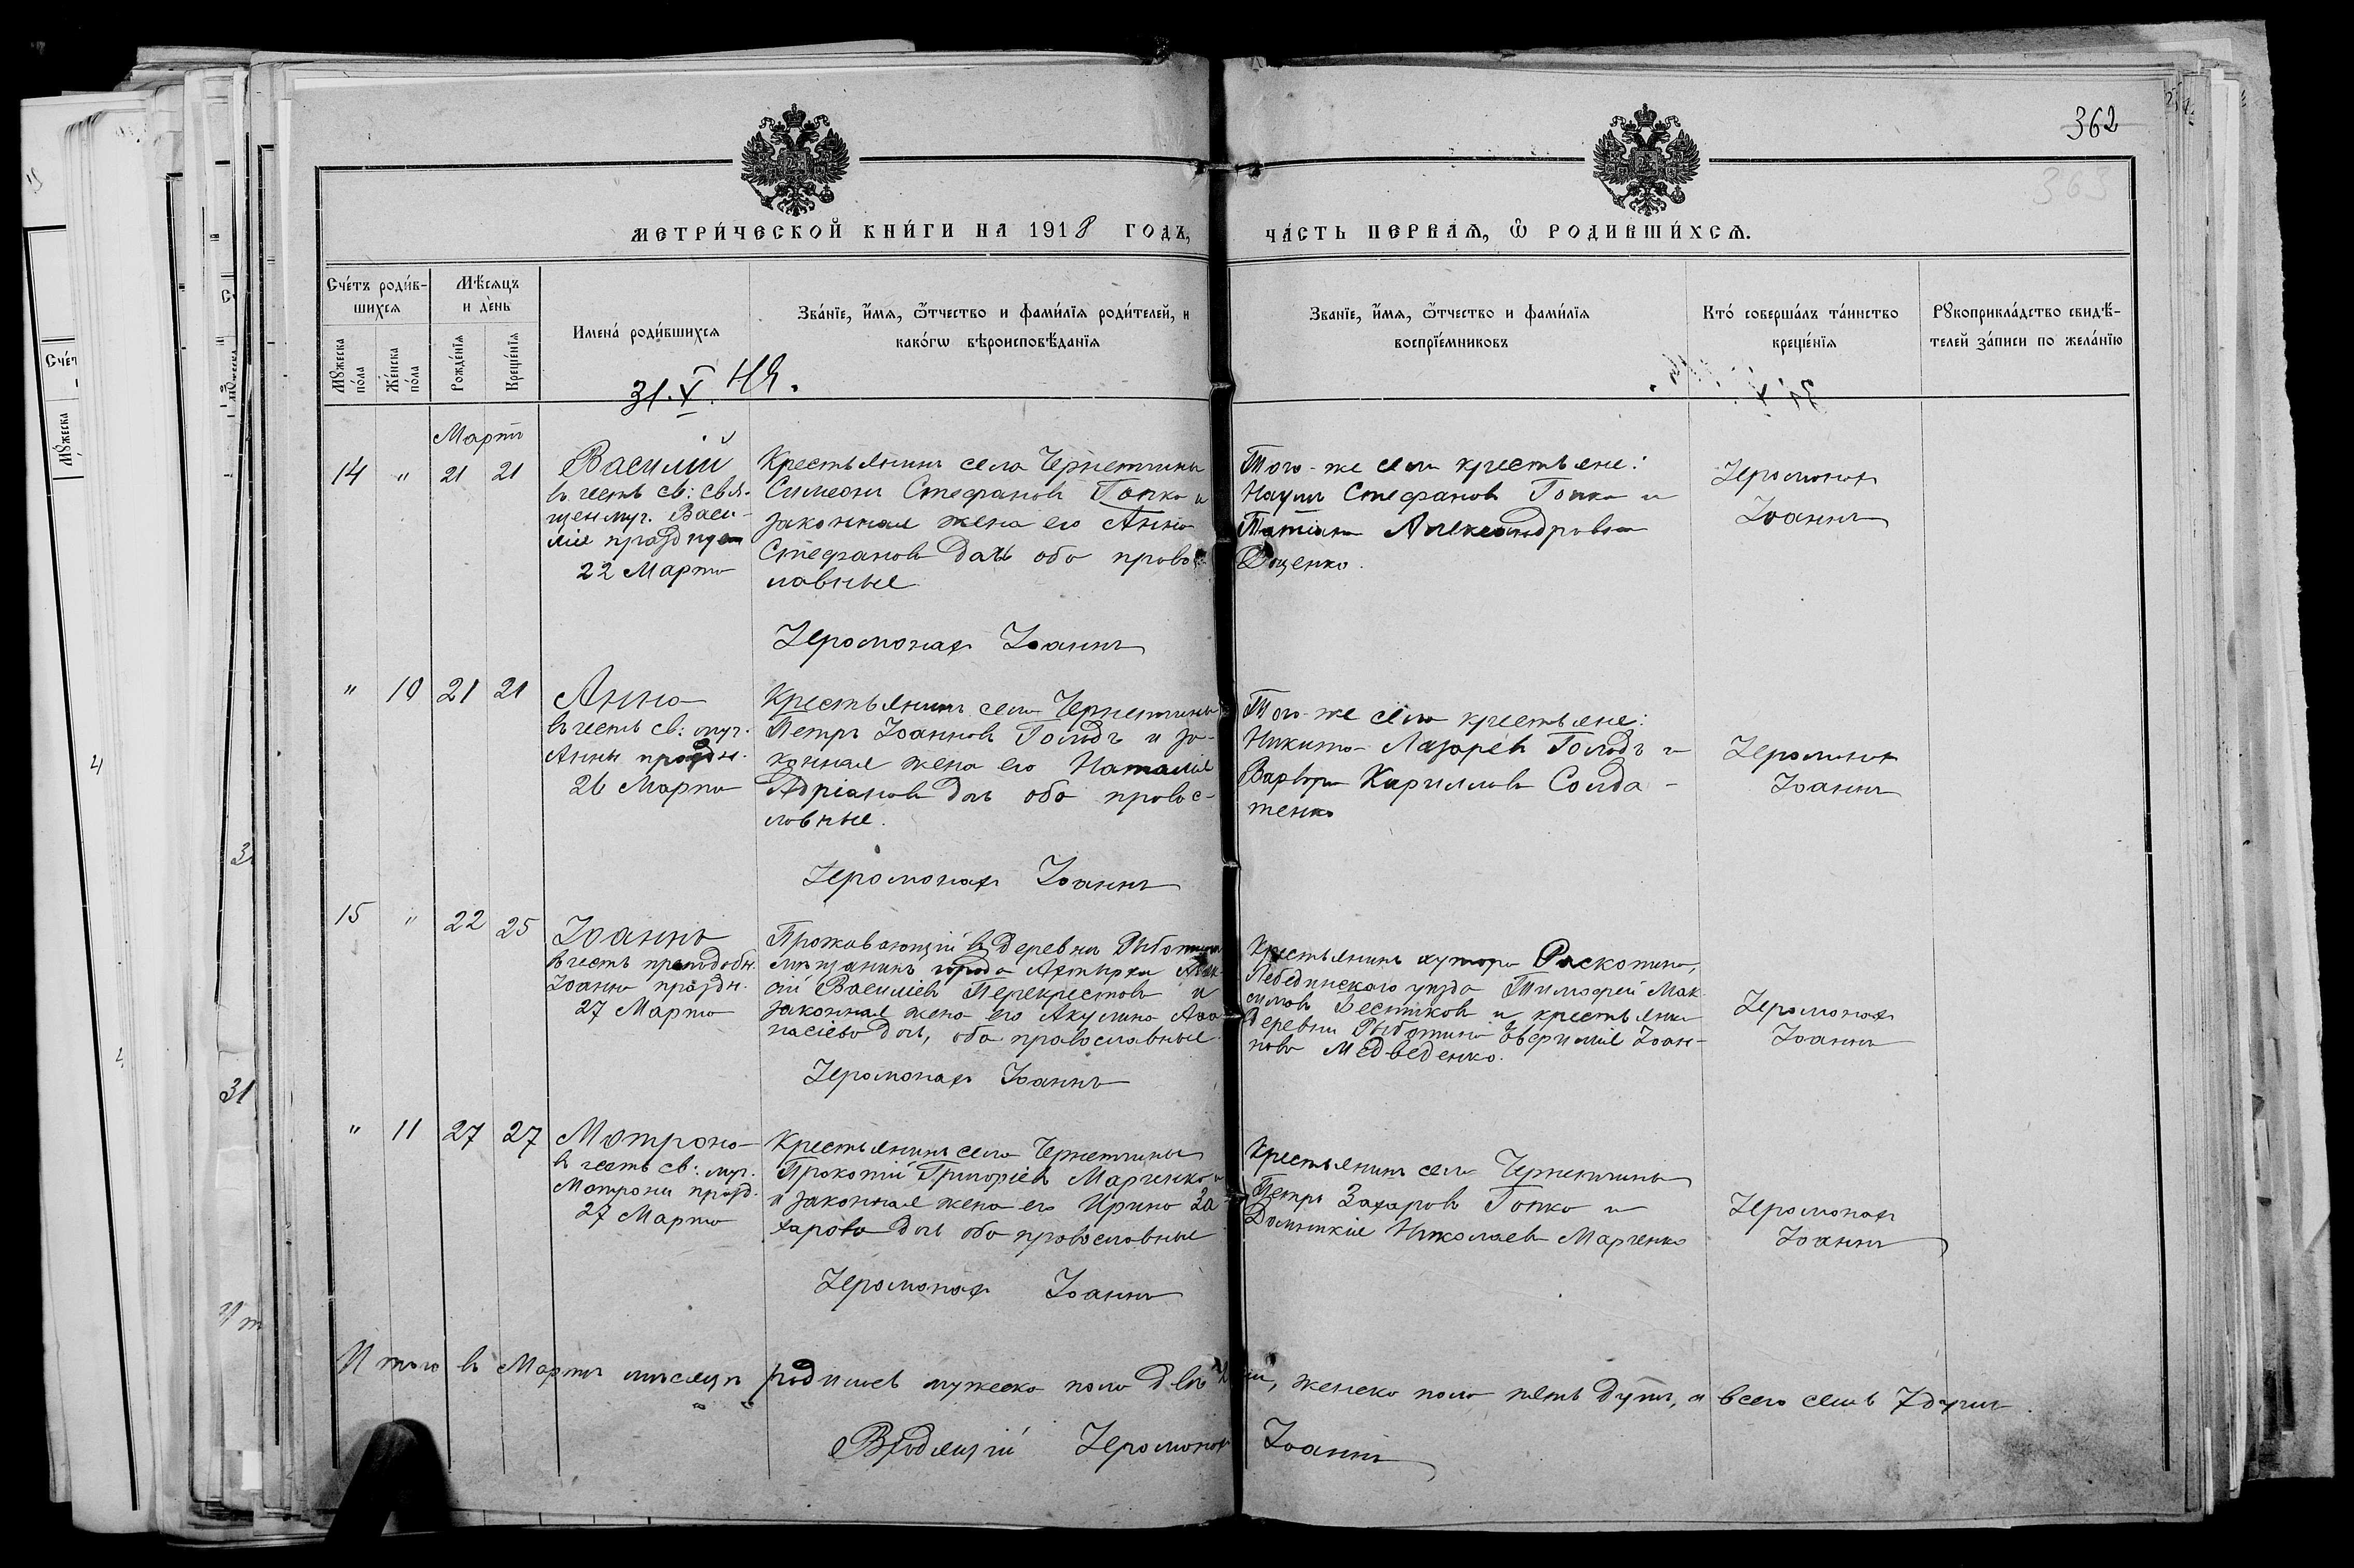 362
363
МЕТРИ́ЧЕСКОЙ КНИ́ГИ НА 1918 ГОДЪ,
ЧА́СТЬ ПЕРВАѦ, Ѿ РОДИВШИ́ХСѦ.
Счéтъ роди́в-
шихсѧ
Мѣ́сѧцъ
и де́нь
Мꙋ́жеска
по́ла
Же́нска
по́ла
Рожде́нїѧ
Креще́нїѧ
Имена́ роди́вшихсѧ
Зва́нїе, и́мѧ, ѻ́тчество и фами́лїѧ роди́телей, и
како́гѡ вѣроисповѣ́данїѧ
Зва́нїе, и́мѧ, ѻ́тчество и фами́лїѧ
воспрїе́мниковъ
Кто́ соверша́лъ та́инство
креще́нїѧ
Рꙋкоприкла́дство свидѣ́-
телей за́писи по жела́нїю
31.V.
Мартъ
14 " 21 21
Василій
въ честь св: свя-
щенмуч. Васи-
лія празднуем
22 Марта
Крестьянинъ села Чернетчины
Симеонъ Стефановъ Гопка и
законная жена его Анна
Стефанова дочь оба право-
лавные
Іеромонахъ Іоаннъ
Того-же села крестьяне:
Наумъ Стефановъ Гопка и
Татіана Александровна
Іеромонахъ
Іоаннъ
" 10 21 21
Анна
въ честь св: муч.
Анны праздн.
26 Марта
Крестьянинъ села Чернетчины
Петръ Іоанновъ Голодъ и за-
конная жена его Наталія
Адріанова дочь оба правос-
лавные.
Іеромонахъ Іоаннъ
Того-же села крестьяне:
Никита Лазаревъ Голодъ и
Варвара Кириллова Солда-
тенко
Іеромонахъ
Іоаннъ
15 " 22 25
Іоаннъ
въ честь преподобн.
Іоанна праздн.
27 Марта
Проживающій въ деревни
мѣщанинъ города Ахтырки Алек-
ѣй Василіевъ Перекрестовъ и
законная жена его Акулина Аѳа-
насіева дочь, оба православные
Іеромонахъ Іоаннъ
Крестьянинъ хутора
Лебединскаго уѣзда Тимофей Мак-
симовъ Вестниковъ и крестьянка
деревни Рыботина Евфимія Іоан-
нова Медведенко.
Іеромонахъ
Іоаннъ
" 11 27 27
Матрона
въ честь св: муч.
Матроны празд.
27 Марта
Крестьянинъ села Чернетчины
Прокопій Григоріевъ Марченко и
и законная жена его Ирина За-
харова дочь оба православные
Іеромонахъ Іоаннъ
Крестьянинъ села Чернетчины
Петръ Захаровъ Гопка и
Домникія Николаева Марченко
Іеромонахъ
Іоаннъ
Итого въ Мартѣ мѣсяцѣ родилось мужеска пола двѣ, женска пола пять душъ, а всего семь 7 душъ.
Іеромонахъ Іоаннъ